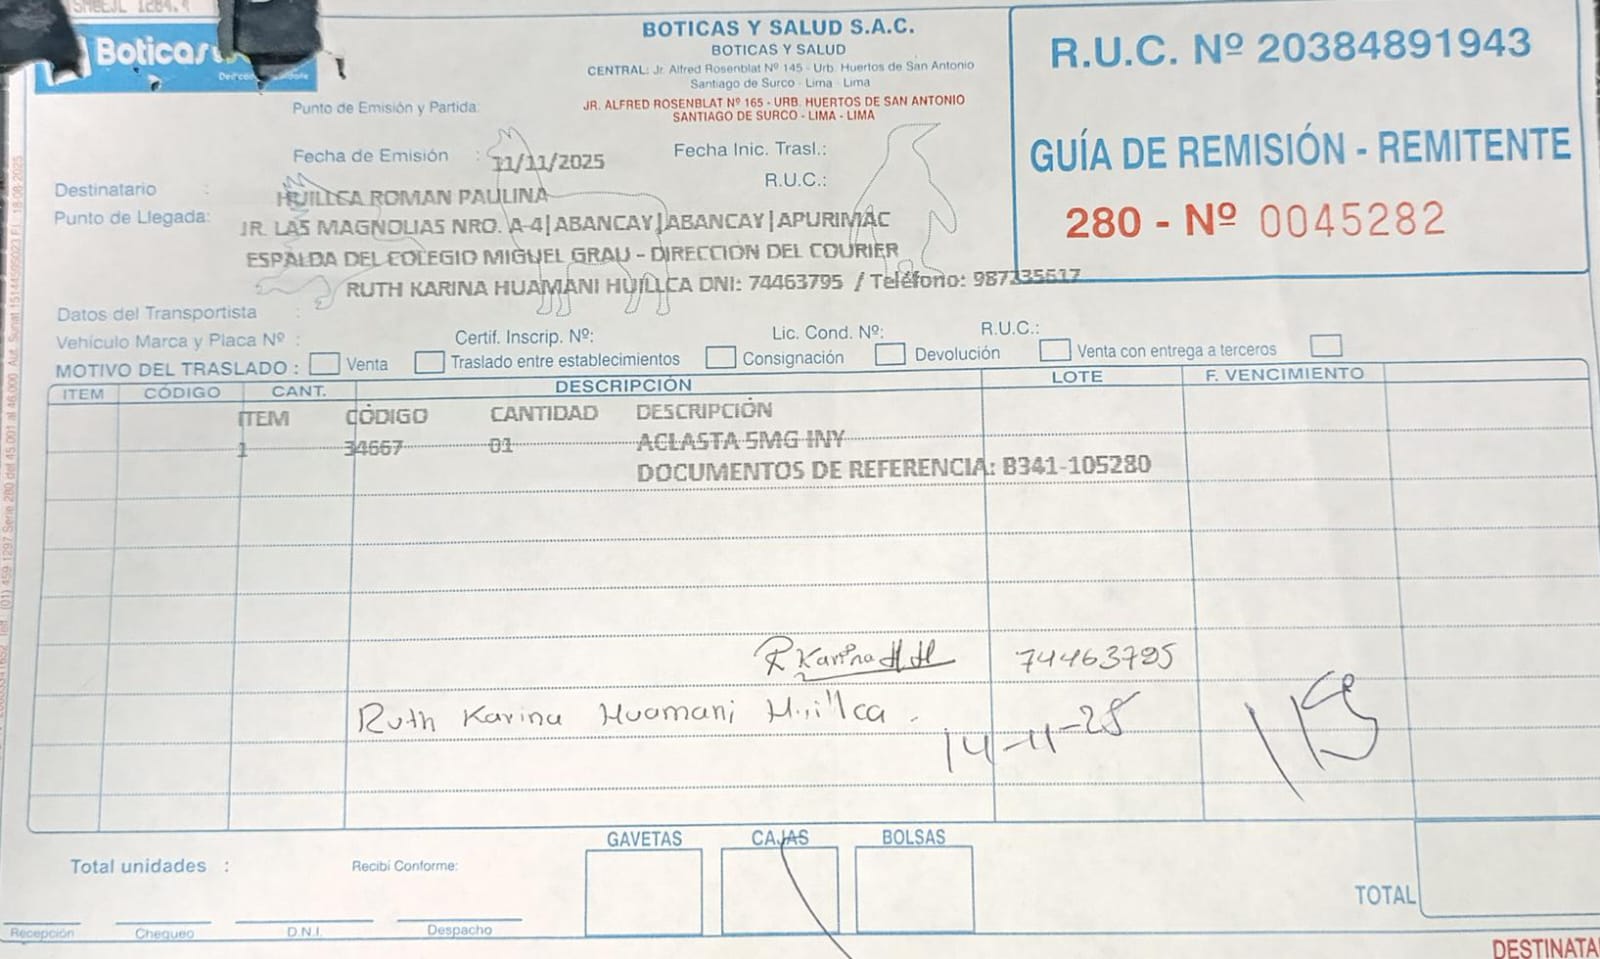 Boticas
BOTICAS Y SALUD S.A.C.
BOTICAS Y SALUD
CENTRAL: Jr. Alfred Rosenblat Nº 145 - Urb. Huertos de San Antonio
Santiago de Surco - Lima - Lima
JR. ALFRED ROSENBLAT Nº 165 - URB. HUERTOS DE SAN ANTONIO
SANTIAGO DE SURCO - LIMA - LIMA
R.U.C. Nº 20384891943
GUÍA DE REMISIÓN - REMITENTE
280 - Nº 0045282
Punto de Emisión y Partida:
Fecha de Emisión : 11/11/2025 Fecha Inic. Trasl.:
R.U.C.:
Destinatario : HUILLCA ROMAN PAULINA
Punto de Llegada: JR. LAS MAGNOLIAS NRO. A-4|ABANCAY|ABANCAY|APURIMAC
ESPALDA DEL COLEGIO MIGUEL GRAU - DIRECCION DEL COURIER
RUTH KARINA HUAMANI HUILLCA DNI: 74463795 / Teléfono: 987235617
Datos del Transportista :
Vehículo Marca y Placa Nº : Certif. Inscrip. Nº: Lic. Cond. Nº: R.U.C.:
MOTIVO DEL TRASLADO : Venta Traslado entre establecimientos Consignación Devolución Venta con entrega a terceros
ITEM CÓDIGO CANT. DESCRIPCIÓN LOTE F. VENCIMIENTO
ITEM CÓDIGO CANTIDAD DESCRIPCIÓN
1 34667 01 ACLASTA 5MG INY
DOCUMENTOS DE REFERENCIA: B341-105280
R Karina H H 74463795
Ruth Karina Huamani Huillca.
14-11-25
GAVETAS CAJAS BOLSAS
Total unidades : Recibí Conforme:
TOTAL
Recepción Chequeo D.N.I. Despacho
DESTINATA